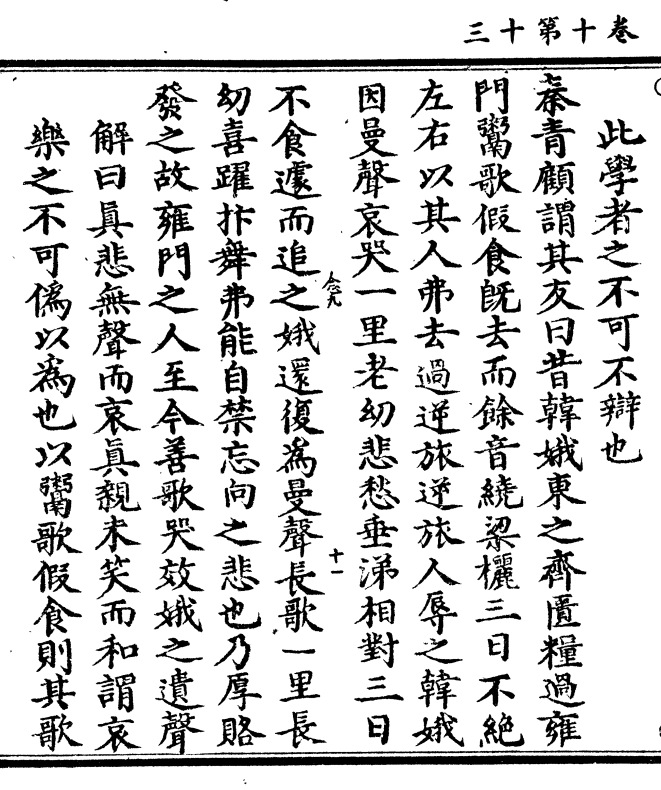 卷十第十三
此學者之不可不辯也
秦青顧謂其友曰昔韓娥東之齊匱糧過雍
門鬻歌假食旣去而餘音繞梁欐三日不絶
左右以其人弗去過逆旅逆旅人辱之韓娥
因曼聲哀哭一里老幼悲愁垂涕相對三日
不食遽而追之娥還復為曼聲長歌一里長
念九
十一
幼喜躍抃舞弗能自禁忘向之悲也乃厚賂
發之故雍門之人至今善歌哭效娥之遺聲
解曰眞悲無聲而哀眞親未笑而和謂哀
樂之不可僞以為也以鬻歌假食則其歌